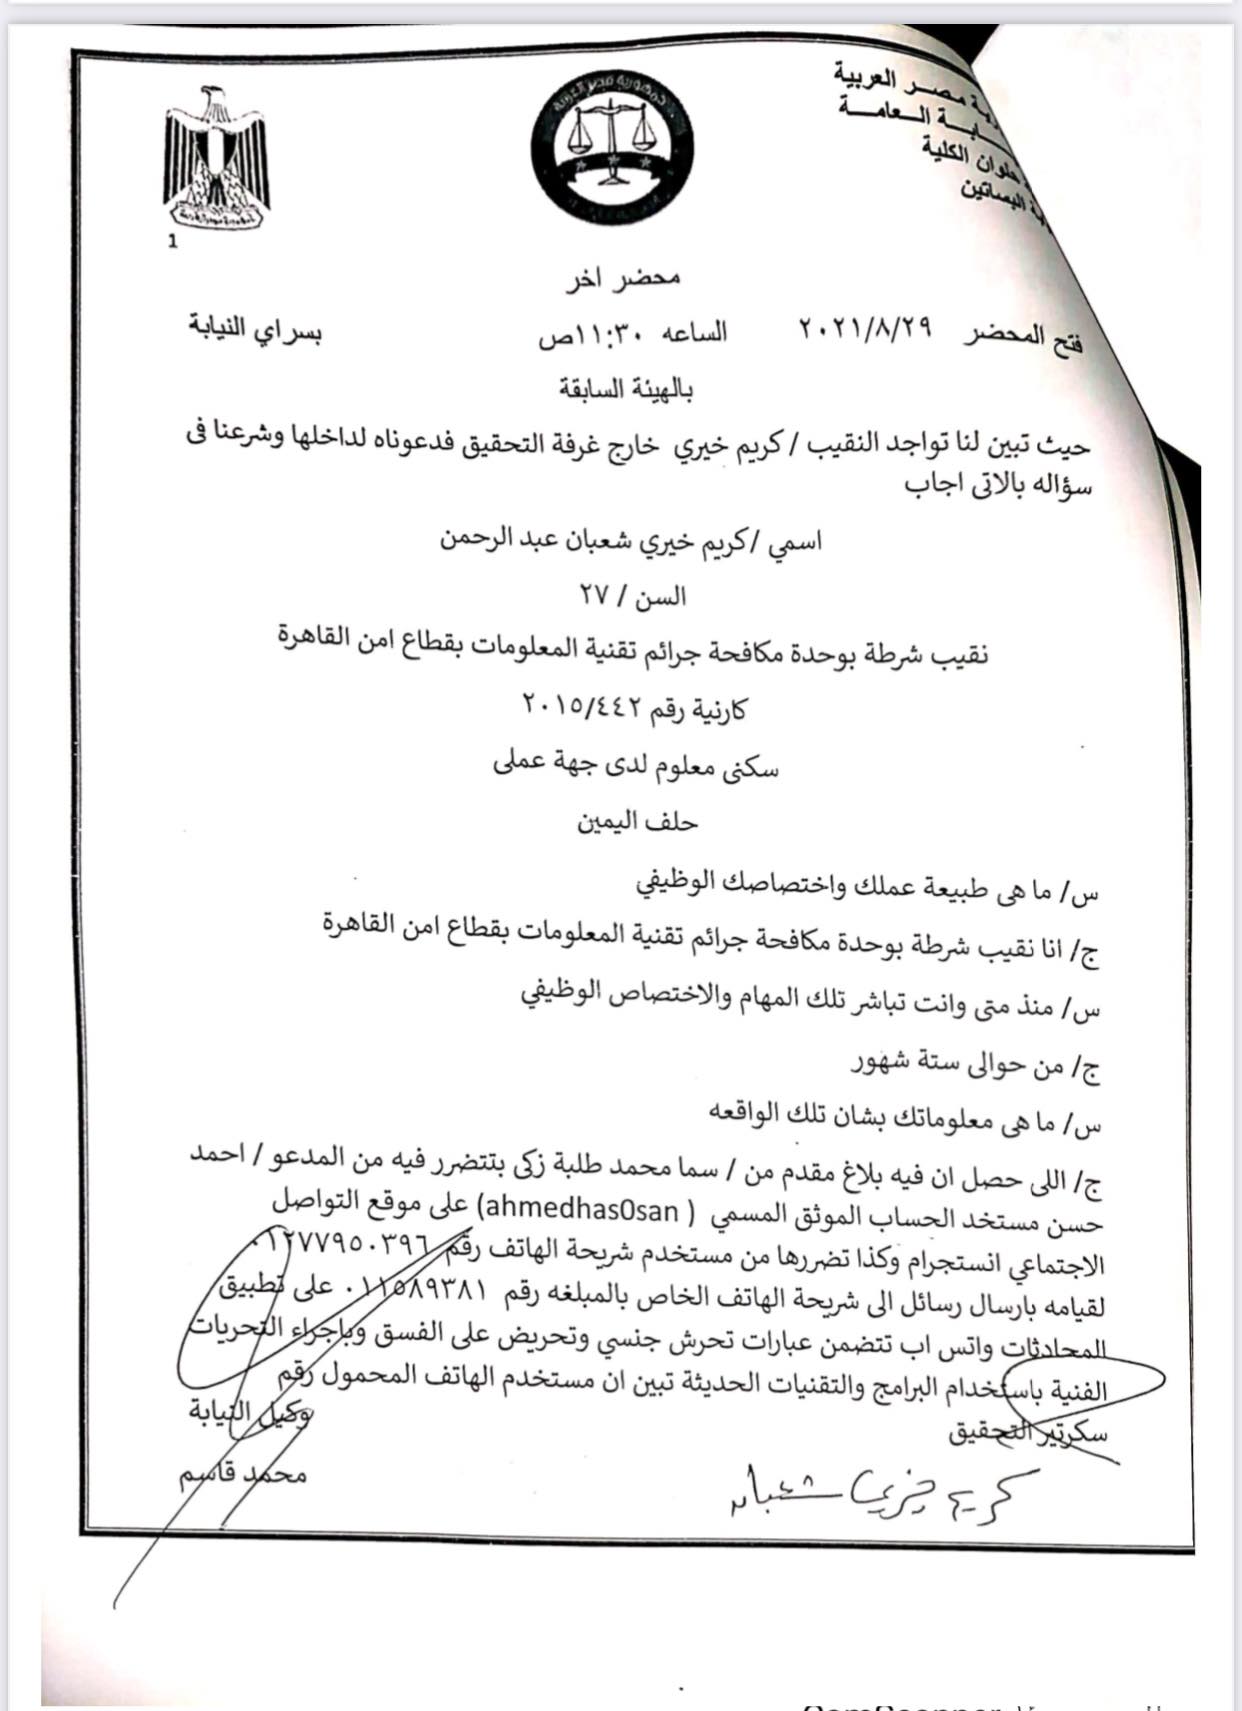 جمهورية مصر العربية
مصر العربية
العامة
حلوان الكلية
البساتين
1
محضر اخر
فتح المحضر ٢٠٢١/٨/٢٩ الساعه ١١:٣٠ص بسراي النيابة
بالهيئة السابقة
حيث تبين لنا تواجد النقيب / كريم خيري خارج غرفة التحقيق فدعوناه لداخلها وشرعنا فى
سؤاله بالاتى اجاب
اسمي /كريم خيري شعبان عبد الرحمن
السن / ٢٧
نقيب شرطة بوحدة مكافحة جرائم تقنية المعلومات بقطاع امن القاهرة
كارنية رقم ٢٠١٥/٤٤٢
سكنى معلوم لدى جهة عملى
حلف اليمين
س/ ما هى طبيعة عملك واختصاصك الوظيفي
ج/ انا نقيب شرطة بوحدة مكافحة جرائم تقنية المعلومات بقطاع امن القاهرة
س/ منذ متى وانت تباشر تلك المهام والاختصاص الوظيفي
ج/ من حوالى ستة شهور
س/ ما هى معلوماتك بشان تلك الواقعه
ج/ اللى حصل ان فيه بلاغ مقدم من / سما محمد طلبة زكى بتتضرر فيه من المدعو / احمد
حسن مستخد الحساب الموثق المسمي ( ahmedhas0san) على موقع التواصل
الاجتماعي انستجرام وكذا تضررها من مستخدم شريحة الهاتف رقم ٠١٢٧٧٩٥٠٣٩٦
لقيامه بارسال رسائل الى شريحة الهاتف الخاص بالمبلغه رقم ٠١١٥٨٩٣٨١ على تطبيق
المحادثات واتس اب تتضمن عبارات تحرش جنسي وتحريض على الفسق وبإجراء التحريات
الفنية باستخدام البرامج والتقنيات الحديثة تبين ان مستخدم الهاتف المحمول رقم
سكرتير التحقيق وكيل النيابة
محمد قاسم
كريم خيري شعبان